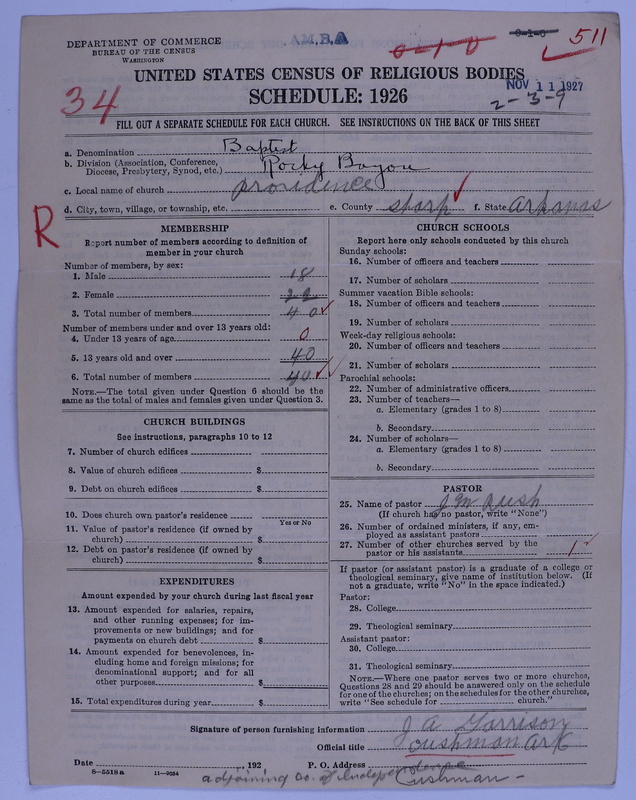 A.M.B.A
0-1-0
0-1-0
511
DEPARTMENT OF COMMERCE
BUREAU OF THE CENSUS
WASHINGTON
34
UNITED STATES CENSUS OF RELIGIOUS BODIES
NOV 11 1927
SCHEDULE: 1926
2-3-9
FILL OUT A SEPARATE SCHEDULE FOR EACH CHURCH. SEE INSTRUCTIONS ON THE BACK OF THIS SHEET
a. Denomination Baptist
b. Division (Association, Conference, Diocese, Presbytery, Synod, etc.) Rocky Bayou
c. Local name of church providence
d. City, town, village, or township, etc. e. County sharp f. State Arkansas
R
MEMBERSHIP
Report number of members according to definition of
member in your church
Number of members, by sex:
1. Male 18
2. Female 22
3. Total number of members 40
Number of members under and over 13 years old:
4. Under 13 years of age 0
5. 13 years old and over 40
6. Total number of members 40
NOTE.—The total given under Question 6 should be the
same as the total of males and females given under Question 3.
CHURCH BUILDINGS
See instructions, paragraphs 10 to 12
7. Number of church edifices
8. Value of church edifices $
9. Debt on church edifices $
10. Does church own pastor's residence
Yes or No
11. Value of pastor's residence (if owned by
church) $
12. Debt on pastor's residence (if owned by
church) $
EXPENDITURES
Amount expended by your church during last fiscal year
13. Amount expended for salaries, repairs,
and other running expenses; for im-
provements or new buildings; and for
payments on church debt $
14. Amount expended for benevolences, in-
cluding home and foreign missions; for
denominational support; and for all
other purposes $
15. Total expenditures during year $
CHURCH SCHOOLS
Report here only schools conducted by this church
Sunday schools:
16. Number of officers and teachers
17. Number of scholars
Summer vacation Bible schools:
18. Number of officers and teachers
19. Number of scholars
Week-day religious schools:
20. Number of officers and teachers
21. Number of scholars
Parochial schools:
22. Number of administrative officers
23. Number of teachers—
a. Elementary (grades 1 to 8)
b. Secondary
24. Number of scholars—
a. Elementary (grades 1 to 8)
b. Secondary
PASTOR
25. Name of pastor J M Rush
(If church has no pastor, write "None")
26. Number of ordained ministers, if any, em-
ployed as assistant pastors
27. Number of other churches served by the
pastor or his assistants 1
If pastor (or assistant pastor) is a graduate of a college or
theological seminary, give name of institution below. (If
not a graduate, write "No" in the space indicated.)
Pastor:
28. College
29. Theological seminary
Assistant pastor:
30. College
31. Theological seminary
NOTE.—Where one pastor serves two or more churches,
Questions 28 and 29 should be answered only on the schedule
for one of the churches; on the schedules for the other churches,
write "See schedule for church."
Signature of person furnishing information J A Garrison
Official title Cushman Ark
Date , 192 P. O. Address
8-5518a 11-9034
adjoining co. of Independence Cushman -